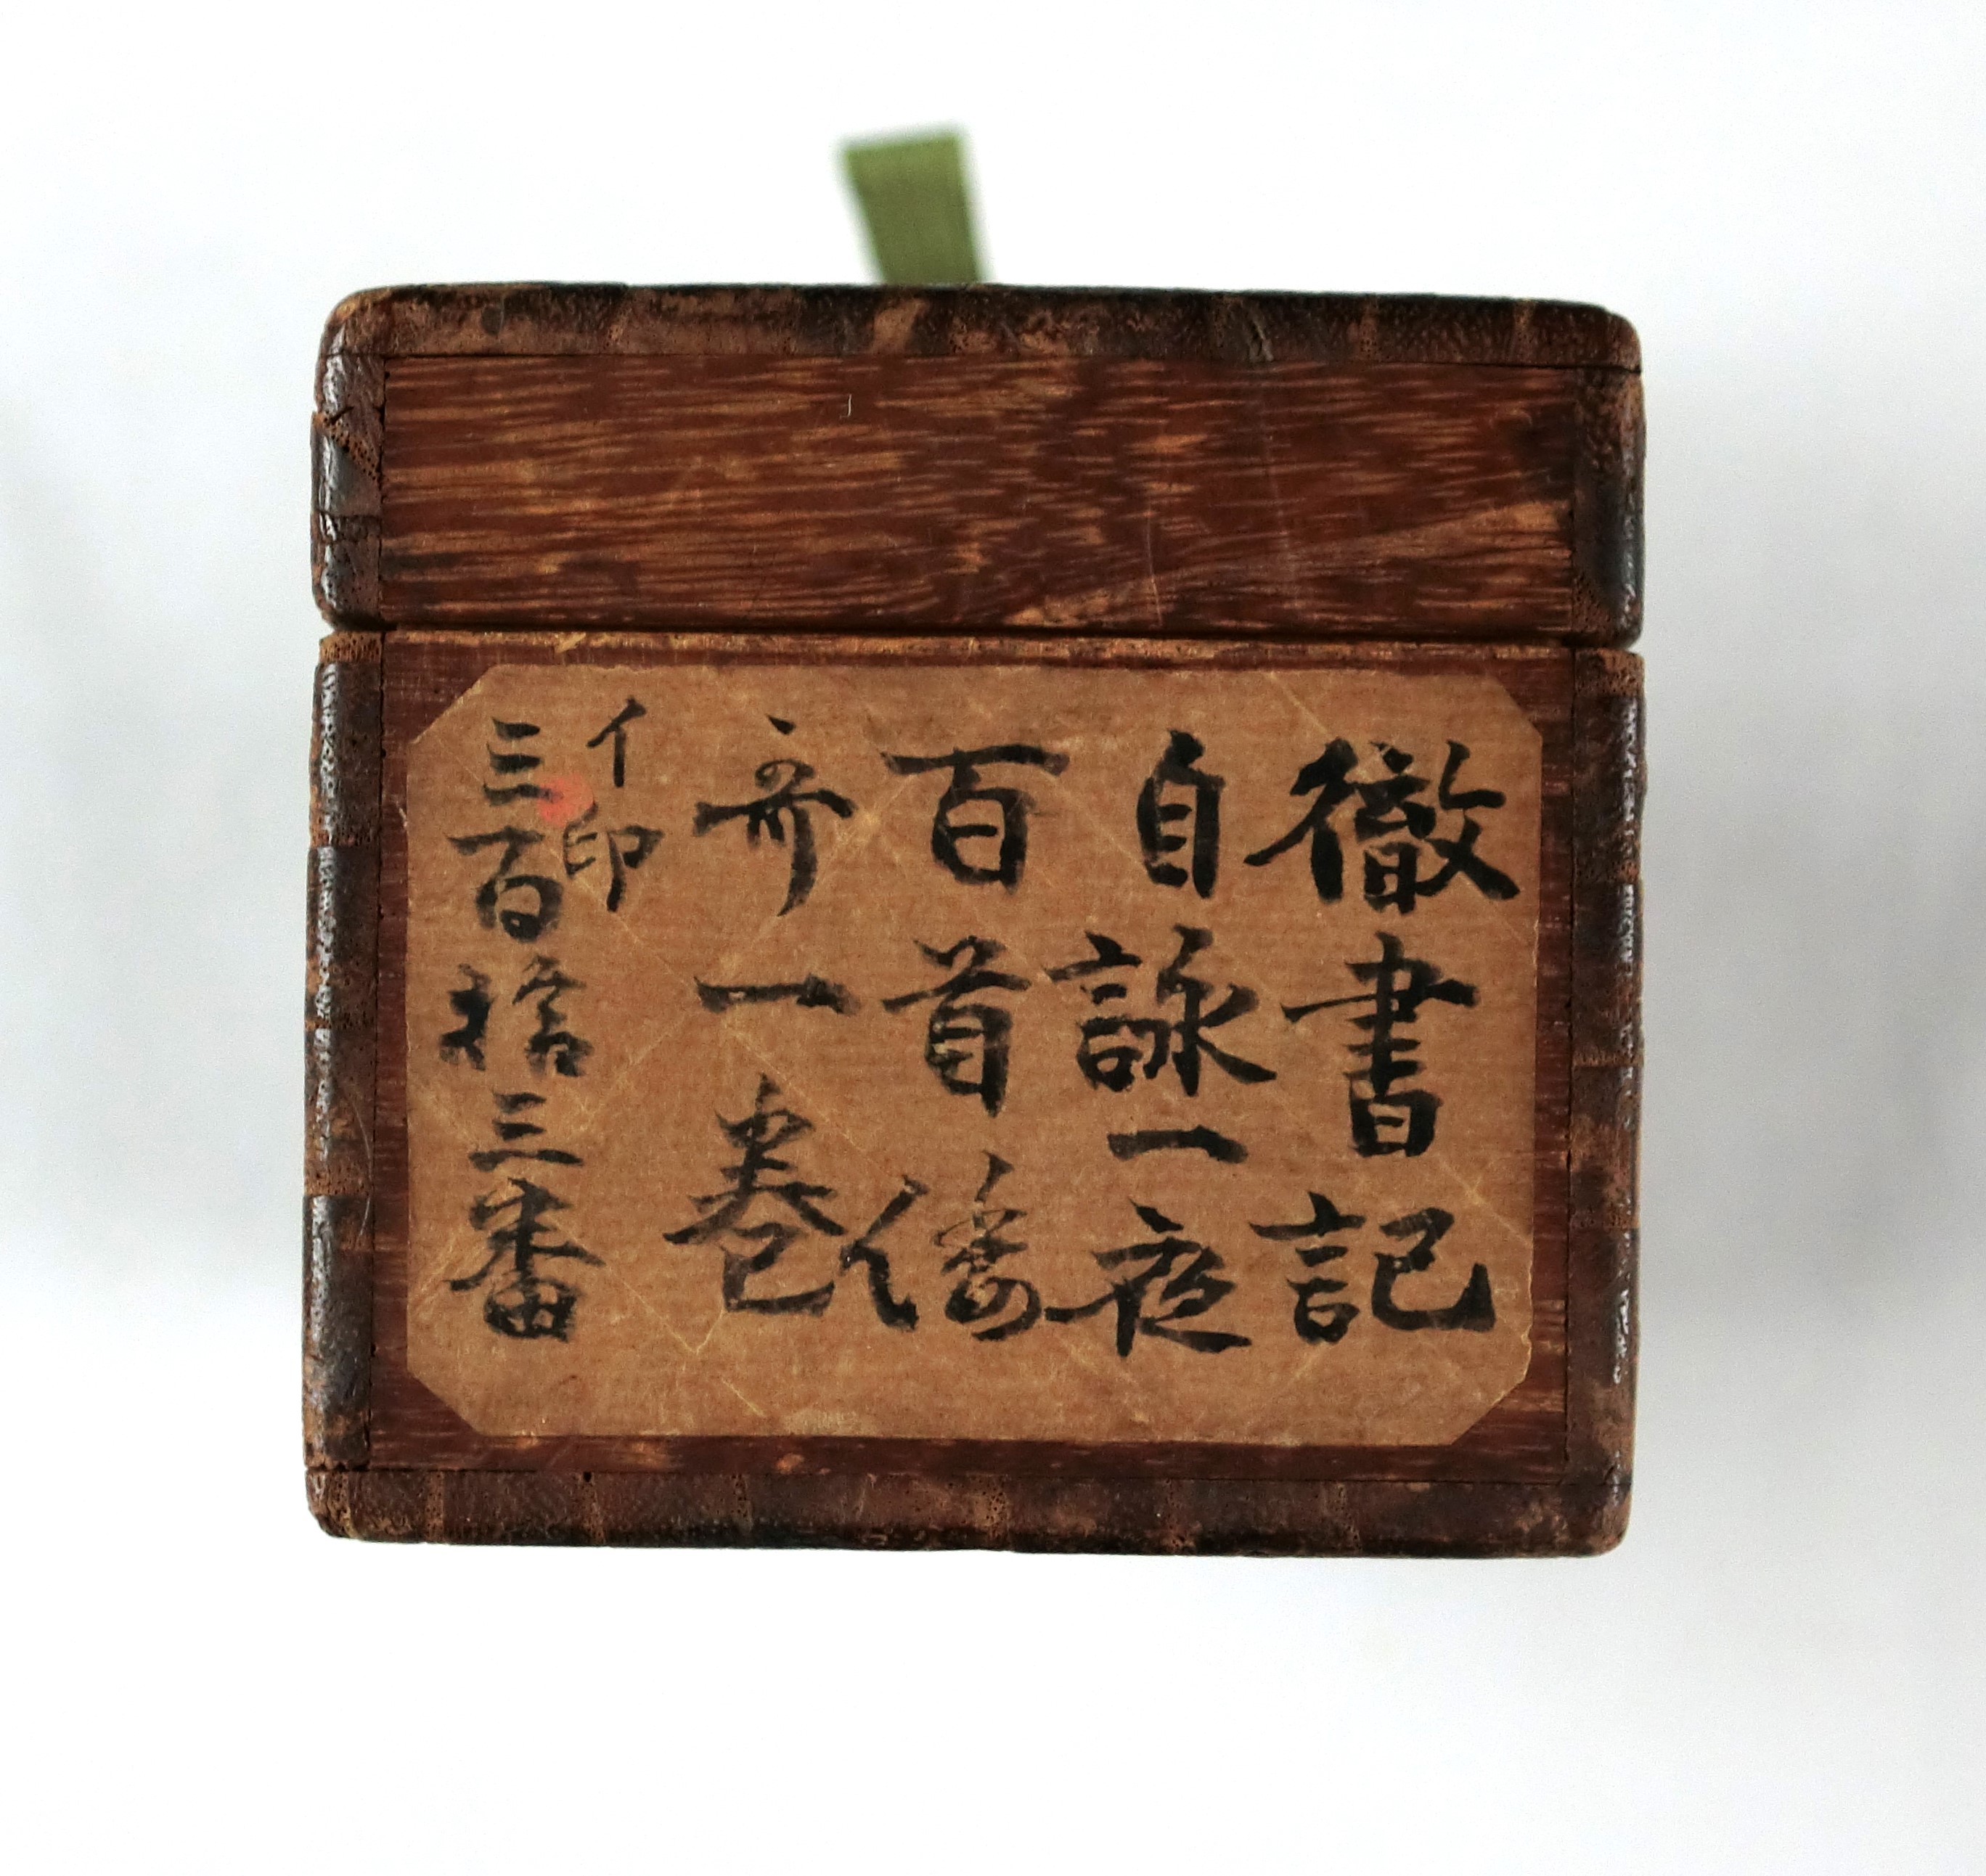 徹書記
自詠一夜
百首倭
哥一巻
イ印
三百拾三番